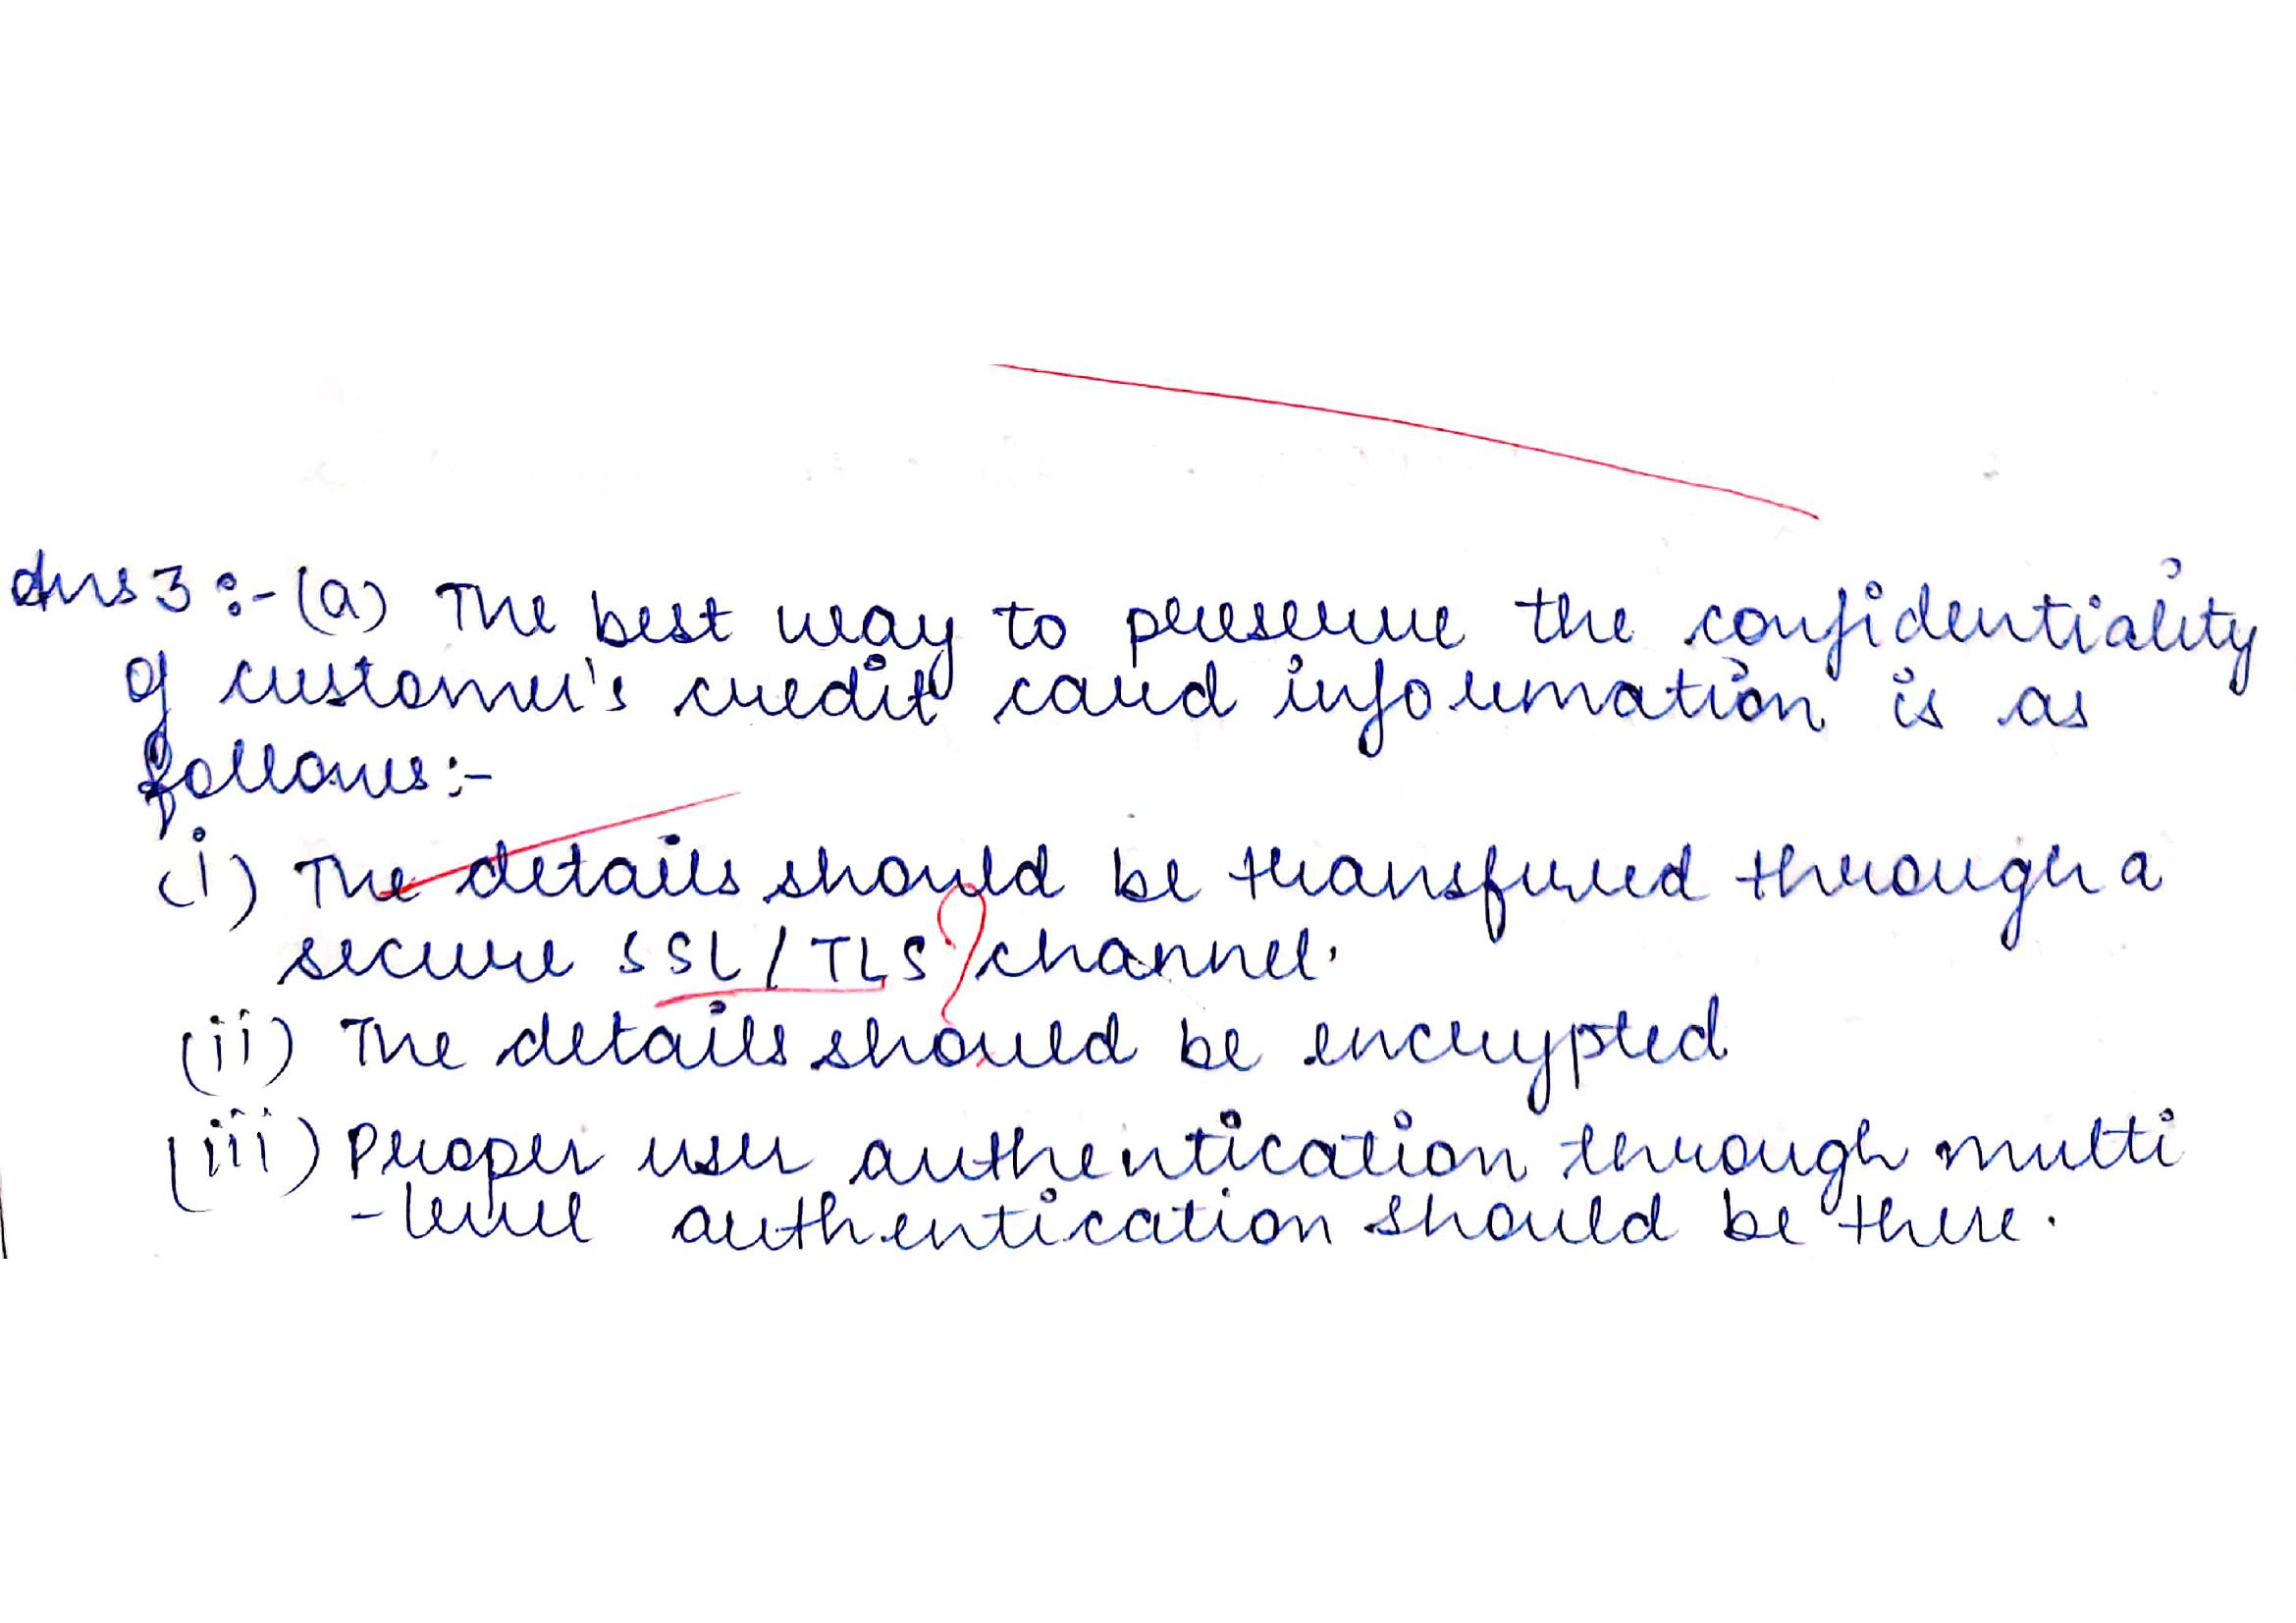 Ans 3 :- (a) The best way to preserve the confidentiality
of customer's credit card information is as
follows:-
(i) The details should be transferred through a
secure SSL/TLS channel.
(ii) The details should be encrypted
(iii) Proper user authentication through multi
-level authentication should be there.